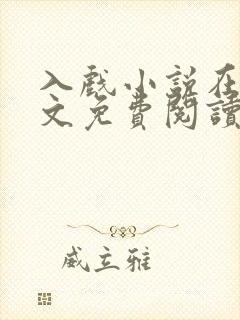 入戲小說在
文免費閱讀
威立雅